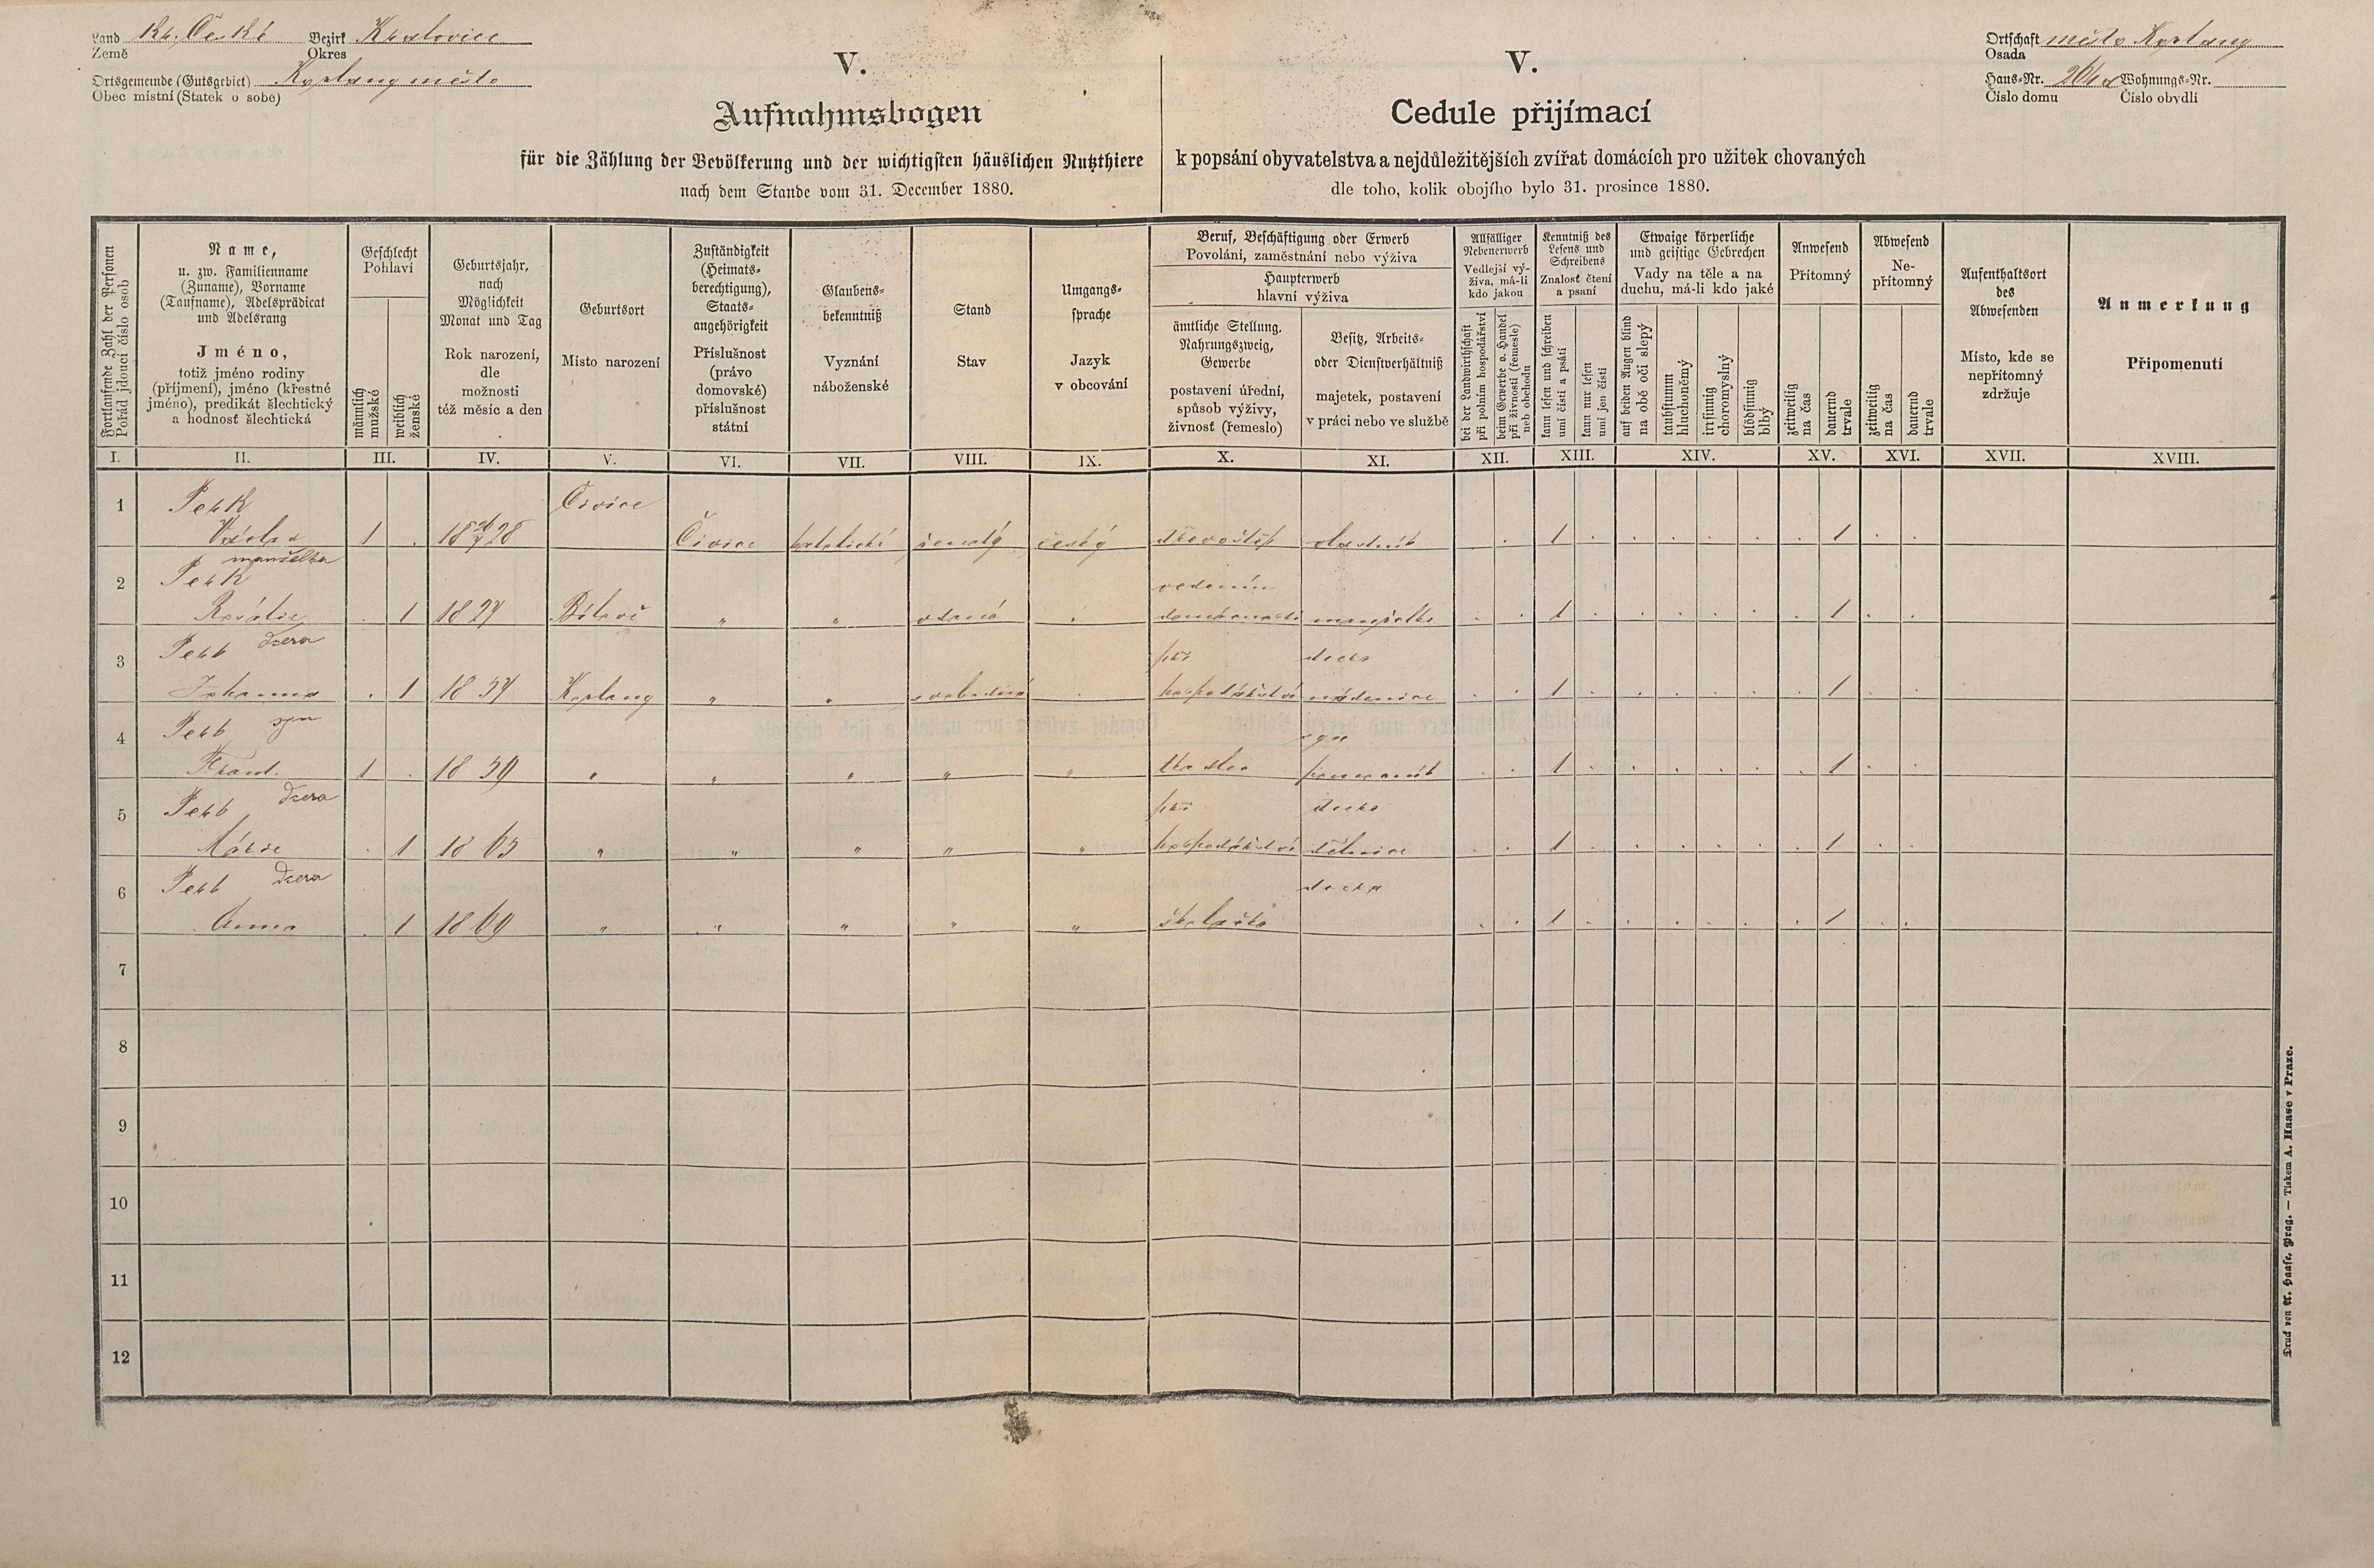 Land Kr. České Bezirk Kralovice
Země Okres
Ortsgemeinde (Gutsgebiet) Kaplany město
Obec místní (Statek o sobě)
Ortschaft město
Osada
Haus-Nr. Wohnungs-Nr.
Číslo domu Číslo obydlí
V.
Aufnahmsbogen
für die Zählung der Bevölkerung und der wichtigsten häuslichen Nutzthiere
nach dem Stande vom 31. December 1880.
V.
Cedule přijímací
k popsání obyvatelstva a nejdůležitějších zvířat domácích pro užitek chovaných
dle toho, kolik obojího bylo 31. prosince 1880.
Fortlaufende Zahl der Personen
Pořád jdoucí číslo osob
Name,
u. zw. Familienname
(Zuname), Vorname
(Taufname), Adelsprädicat
und Adelsrang
Jméno,
totiž jméno rodiny
(příjmení), jméno (křestné
jméno), predikát šlechtický
a hodnosť šlechtická
Geschlecht
Pohlaví
männlich
mužské
weiblich
ženské
Geburtsjahr,
nach
Möglichkeit
Monat und Tag
Rok narození,
dle
možnosti
též měsíc a den
Geburtsort
Místo narození
Zuständigkeit
(Heimats-
berechtigung),
Staats-
angehörigkeit
Příslušnost
(právo
domovské)
příslušnost
státní
Glaubens-
bekenntniß
Vyznání
náboženské
Stand
Stav
Umgangs-
sprache
Jazyk
v obcování
Beruf, Beschäftigung oder Erwerb
Povolání, zaměstnání nebo výživa
Haupterwerb
hlavní výživa
ämtliche Stellung.
Nahrungszweig,
Gewerbe
postavení úřední,
spůsob výživy,
živnosť (řemeslo)
Besitz, Arbeits-
oder Dienstverhältniß
majetek, postavení
v práci nebo ve službě
Allfälliger
Nebenerwerb
Vedlejší vý-
živa, má-li
kdo jakou
bei der Landwirthschaft
při polním hospodářství
beim Gewerbe o. Handel
při živnosti (řemesle)
neb obchodu
Kenntniß des
Lesens und
Schreibens
Znalosť čtení
a psaní
kann lesen und schreiben
umí čísti a psáti
kann nur lesen
umí jen čísti
Etwaige körperliche
und geistige Gebrechen
Vady na těle a na
duchu, má-li kdo jaké
auf beiden Augen blind
na obě oči slepý
taubstumm
hluchoněmý
irrsinnig
choromyslný
blödsinnig
blbý
Anwesend
Přítomný
zeitweilig
na čas
dauernd
trvale
Abwesend
Ne-
přítomný
zeitweilig
na čas
dauernd
trvale
Aufenthaltsort
des
Abwesenden
Místo, kde se
nepřítomný
zdržuje
Anmerkung
Připomenutí
I. II. III. IV. V. VI. VII. VIII. IX. X. XI. XII. XIII. XIV. XV. XVI. XVII. XVIII.
1 Perk Čivice
Václav 1 . Čivice katolická ženatý český vlastník . . 1 . . . . . . 1 . .
manželka
2 Perk vedením
Rosálie . 1 1827 " " vdaná . domácnosti manželka . . 1 . . . . . . 1 . .
3 Perk dcera při dcera
Johanna . 1 18 " " svobodná . hospodářství nádenice . . 1 . . . . . . 1 . .
4 Perk syn syn
Frant. 1 . 18 59 " " " " " tkadlec pomocník . . 1 . . . . . . 1 . .
5 Perk dcera při dcera
Marie . 1 18 63 " " " " " hospodářství dělnice . . 1 . . . . . . 1 . .
6 Perk dcera dcera
Anna . 1 18 69 " " " " " školačka . . 1 . . . . . . 1 . .
7
8
9
10
11
12
Druck von A. Haase, Prag. — Tiskem A. Haase v Praze.